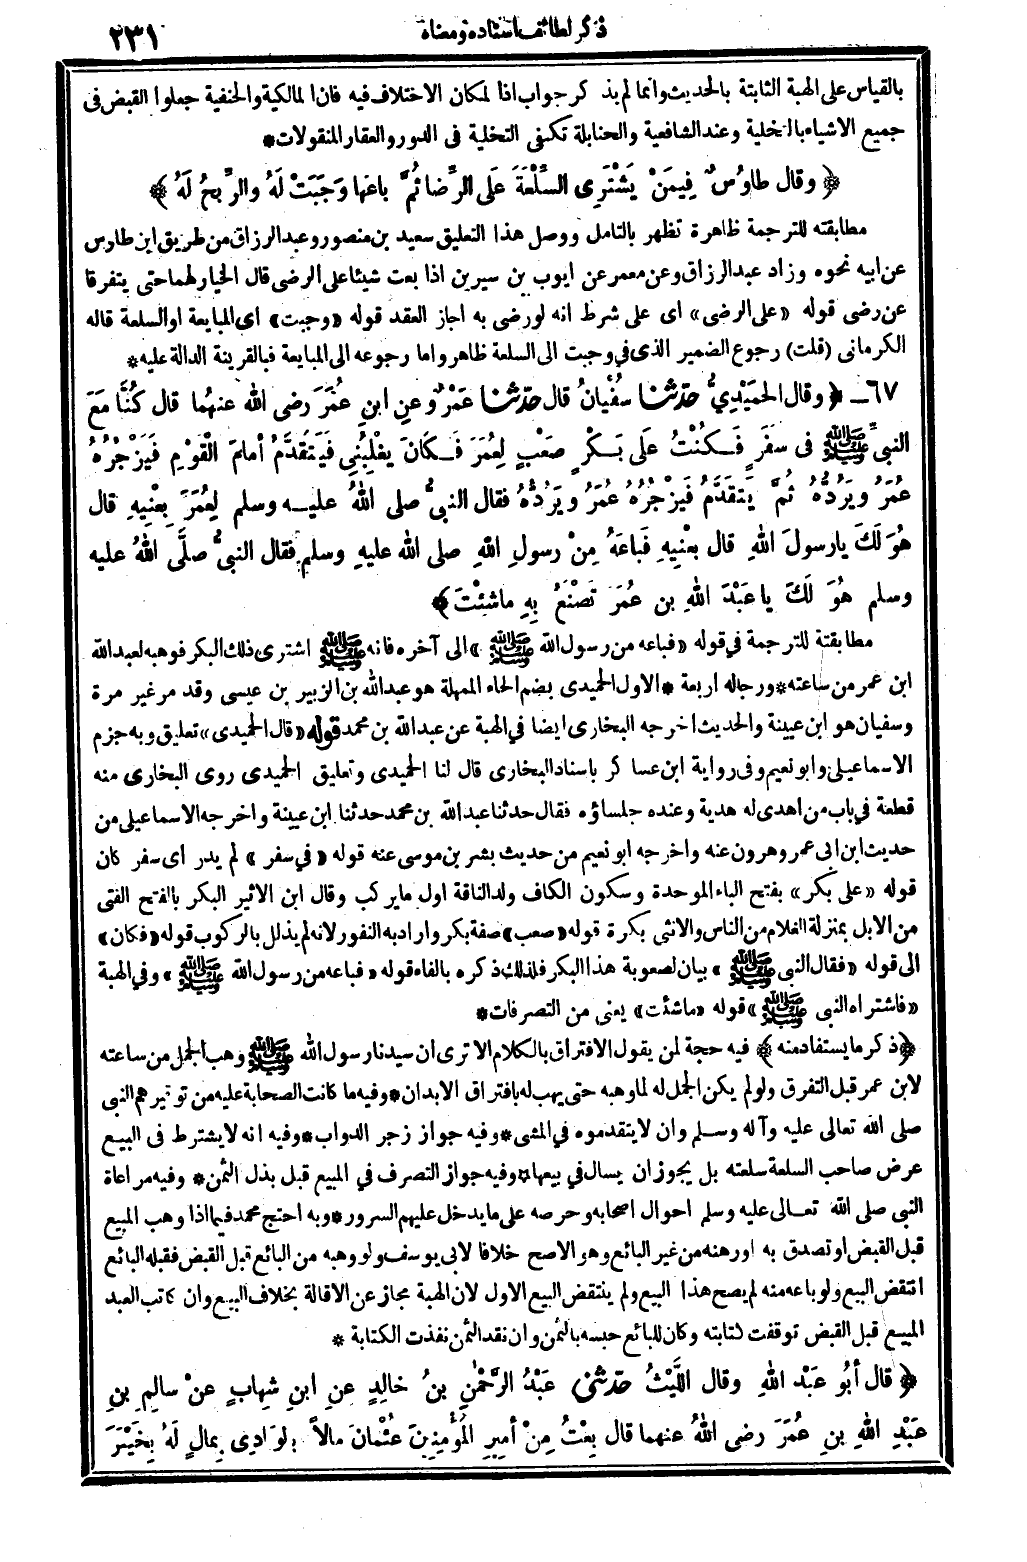 ذكر لطائف اسناده ومعناه
٢٣١
بالقياس على الهبة الثابتة بالحديث وانما لم يذكر جواب اذا لمكان الاختلاف فيه فان المالكية والحنفية جعلوا القبض فى
جميع الاشياء بالتخلية وعند الشافعية والحنابلة تكفى التخلية فى الدور والعقار المنقولات *
﴿ وقال طاوُسٌ فِيمَنْ يَشْتَرِى السِّلْعَةَ عَلَى الرِّضا ثُمَّ باعَها وَجَبَتْ لَهُ والرِّبحُ لَهُ ﴾
مطابقته للترجمة ظاهرة تظهر بالتامل ووصل هذا التعليق سعيد بن منصور وعبد الرزاق من طريق ابن طاوس
عن ابيه نحوه وزاد عبد الرزاق وعن معمر عن ايوب بن سيرين اذا بعت شيئا على الرضى قال الخيار لهما حتى يتفرقا
عن رضى قوله «على الرضى» اى على شرط انه لو رضى به اجاز العقد قوله «وجبت» اى المبايعة او السلعة قاله
الكرمانى (قلت) رجوع الضمير الذى فى وجبت الى السلعة ظاهر واما رجوعه الى المبايعة فبالقرينة الدالة عليه *
٦٧ ــ ﴿ وقال الحُمَيْدِيُّ حَدَّثنا سُفْيانُ قال حَدَّثنا عَمْرٌو عنِ ابنِ عُمَرَ رضى اللهُ عنهُما قال كُنَّا مَعَ
النبيِّ ﷺ فى سفَرٍ فَـكُنْتُ عَلَى بَـكْرٍ صَعْبٍ لِعُمَرَ فَـكانَ يغْلِبُنِى فَيَتَقَدَّمُ أمامَ الْقَوْمِ فَيَزْجُرُهُ
عُمَرُ ويَرُدُّهُ ثُمَّ يَتقَدَّمُ فَيَزْجُرُهُ عُمَرُ ويَرُدُّهُ فقال النبيُّ صلى اللهُ عليـه وسلم لِعُمَرَ بِعْنِيهِ قال
هُوَ لَكَ يارسولَ اللهِ قال بِعْنِيهِ فَباعَهُ مِنْ رسولِ اللهِ صلى الله عليهِ وسلم فقال النبيُّ صلَّى اللهُ عليه
وسلم هُوَ لَكَ ياعَبْدَ اللهِ بن عُمَرَ تَصْنَعُ بِهِ ماشِئْتَ ﴾
مطابقتة للترجمة فى قوله «فباعه من رسول الله ﷺ» الى آخره فانه ﷺ اشترى ذلك البكر فوهبه لعبد الله
ابن عمر من ساعته * ورجاله اربعة * الاول الحميدى بضم الحاء المهملة هو عبد الله بن الزبير بن عيسى وقد مر غير مرة
وسفيان هو ابن عيينة والحديث اخرجه البخارى ايضا فى الهبة عن عبد الله بن محمد قوله «قال الحميدى» تعليق وبه جزم
الاسماعيلى وابو نعيم وفى رواية ابن عساكر باسناد البخارى قال لنا الحميدى وتعليق الحميدى روى البخارى منه
قطعة فى باب من اهدى له هدية وعنده جلساؤه فقال حدثنا عبد الله بن محمد حدثنا ابن عيينة واخرجه الاسماعيلى من
حديث ابن ابى عمر وهرون عنه واخرجه ابو نعيم من حديث بشر بن موسى عنه قوله «فى سفر» لم يدر اى سفر كان
قوله «على بكر» بفتح الباء الموحدة وسكون الكاف ولد الناقة اول مايركب وقال ابن الاثير البكر بالفتح الفتى
من الابل بمنزلة الغلام من الناس والانثى بكرة قوله «صعب» صفة بكر واراد به النفور لانه لم يذلل بالركوب قوله «فكان»
الى قوله «فقال النبى ﷺ» بيان لصعوبة هذا البكر فلذلك ذكره بالفاء قوله «فباعه من رسول الله ﷺ» وفى الهبة
«فاشتراه النبى ﷺ» قوله «ماشئت» يعنى من التصرفات *
﴿ذكر ما يستفاد منه﴾ فيه حجة لمن يقول الافتراق بالكلام الا ترى ان سيدنا رسول الله ﷺ وهب الجمل من ساعته
لابن عمر قبل التفرق ولو لم يكن الجمل له لما وهبه حتى يهب له بافتراق الابدان * وفيه ما كانت الصحابة عليه من توقيرهم النبى
صلى الله تعالى عليه وآله وسلم وان لايتقدموه فى المشى * وفيه جواز زجر الدواب * وفيه انه لا يشترط فى البيع
عرض صاحب السلعة سلعته بل يجوز ان يسال فى بيعها * وفيه جواز التصرف فى المبيع قبل بذل الثمن * وفيه مراعاة
النبى صلى الله تعـالى عليه وسلم احوال اصحابه وحرصه على ما يدخل عليهم السرور * وبه احتج محمد فيما اذا وهب المبيع
قبل القبض او تصدق به اورهنه من غير البائع وهو الاصح خلافا لابى يوسف ولو وهبه من البائع قبل القبض فقبله البائع
انتقض البيع ولو باعه منه لم يصح هذا البيع ولم ينتقض البيع الاول لان الهبة مجاز عن الاقالة بخلاف البيع وان كاتب العبد
المبيع قبل القبض توقفت كتابته وكان للبائع حبسه بالثمن وان نقد الثمن نفذت الكتابة *
﴿ قال أبُو عَبْدِ اللهِ وقال اللَّيْثُ حَدَّثَنِى عَبْدُ الرَّحْمٰنِ بنُ خالِدٍ عنِ ابنِ شِهابٍ عنْ سالِمِ بنِ
عَبْدِ اللهِ بنِ عُمَرَ رضى اللهُ عنهما قال بِعْتُ مِنْ أمِيرِ المُؤْمِنِينَ عُثْمانَ مالاً بِالوَادِى بِمالٍ لَهُ بِخَيْبَرَ